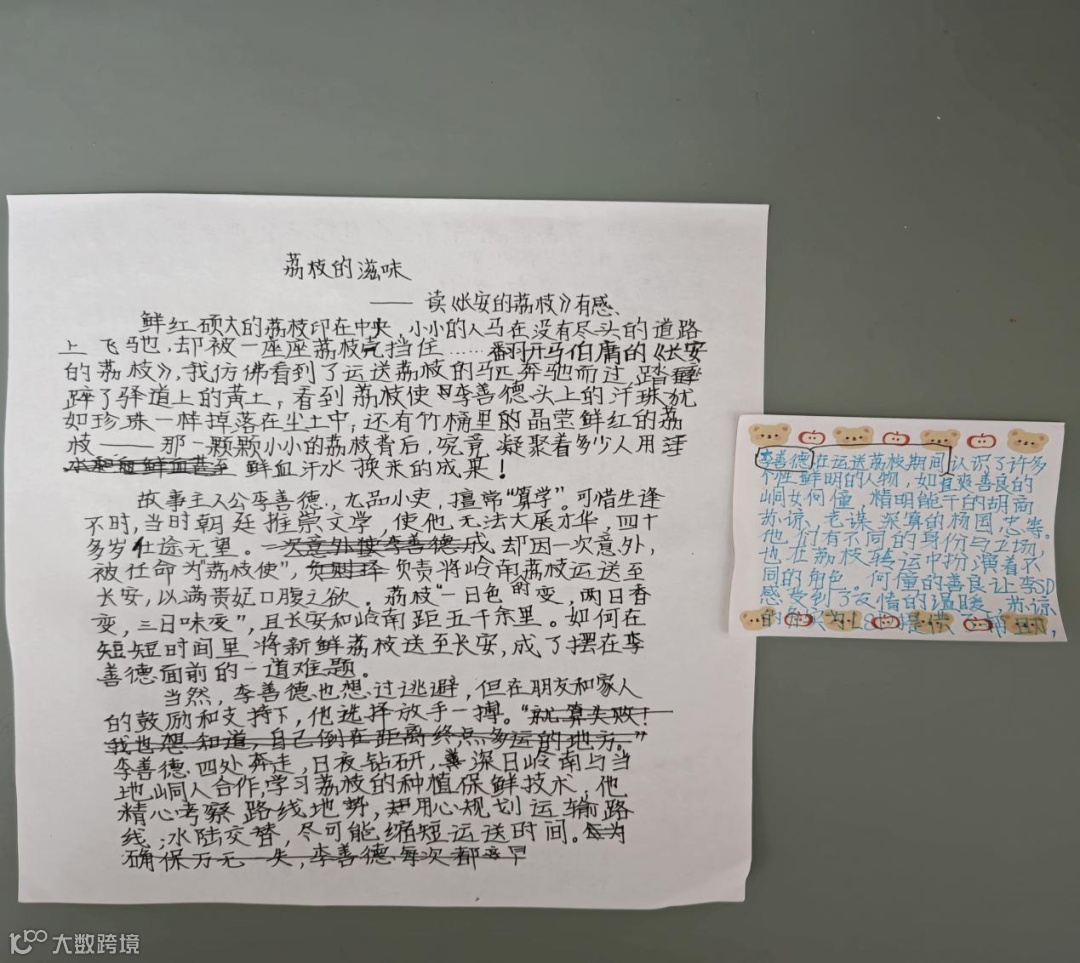 荔枝的滋味
—— 读《长安的荔枝》有感
鲜红硕大的荔枝印在中央,小小的人马在没有尽头的道路
上飞驰,却被一座座荔枝壳挡住……翻开马伯庸的《长安
的荔枝》,我仿佛看到了运送荔枝的马匹奔驰而过,踏
碎了驿道上的黄土,看到荔枝使李善德头上的汗珠犹
如珍珠一样掉落在尘土中,还有竹桶里的晶莹鲜红的荔
枝——那一颗颗小小的荔枝背后,究竟凝聚着多少人用
鲜血汗水换来的成果!
故事主人公李善德,九品小吏,擅常“算学”。可惜生逢
不时,当时朝廷推崇文学,使他无法大展才华,四十
多岁仕途无望。一次意外使李善德成却因一次意外,
被任命为“荔枝使”,负责将岭南荔枝运送至
长安,以满贵妃口腹之欲。荔枝“一日色变,两日香
变,三日味变”,且长安和岭南距五千余里。如何在
短短时间里将新鲜荔枝送至长安,成了摆在李
善德面前的一道难题。
当然,李善德也想过逃避,但在朋友和家人
的鼓励和支持下,他选择放手一搏。“就算失败!
我也想知道,自己倒在距离终点多远的地方。”
李善德四处奔走,日夜钻研,深日岭南与当
地峒人合作,学习荔枝的种植保鲜技术,他
精心考察路线地势,用心规划运输路
线;水陆交替,尽可能缩短运送时间。为
确保万无一失,李善德每次都
李善德在运送荔枝期间认识了许多
个性鲜明的人物,如直爽善良的
峒女何僮,精明能干的胡商
苏谅、老谋深算的杨国忠等。
他们有不同的身份与立场,
也在荔枝转运中扮演着不
同的角色。何僮的善良让李SD
感受到了友情的温暖,苏谅
大数跨境